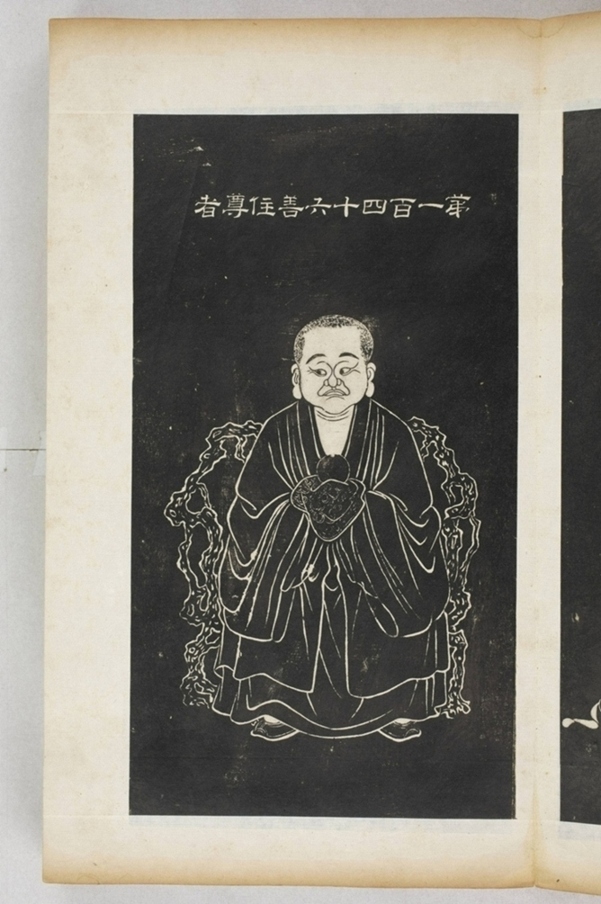 第一百四十六善住尊者